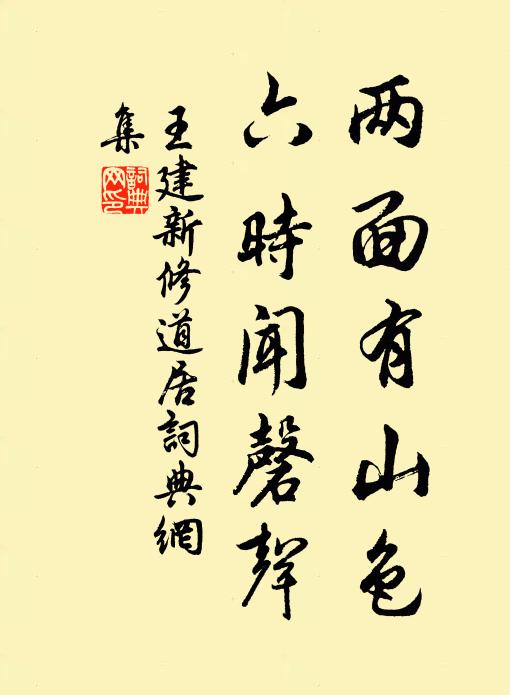 两面有山色
六時聞磬聲
王建新修道居詞典網
集
詞典网印